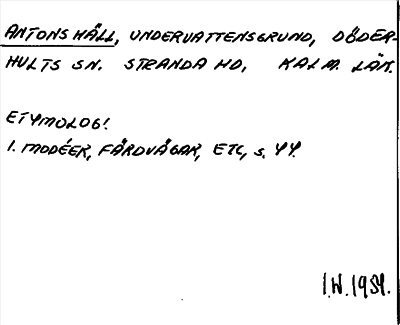 ANTONS HÄLL, UNDERVATTENSGRUND, DÖDER-
HULTS SN. STRANDA HD, KALM. LÄN.
ETYMOLOGI
I. MODÉER, FÄRDVÄGAR, ETC, s. 44.
I.W. 1981.